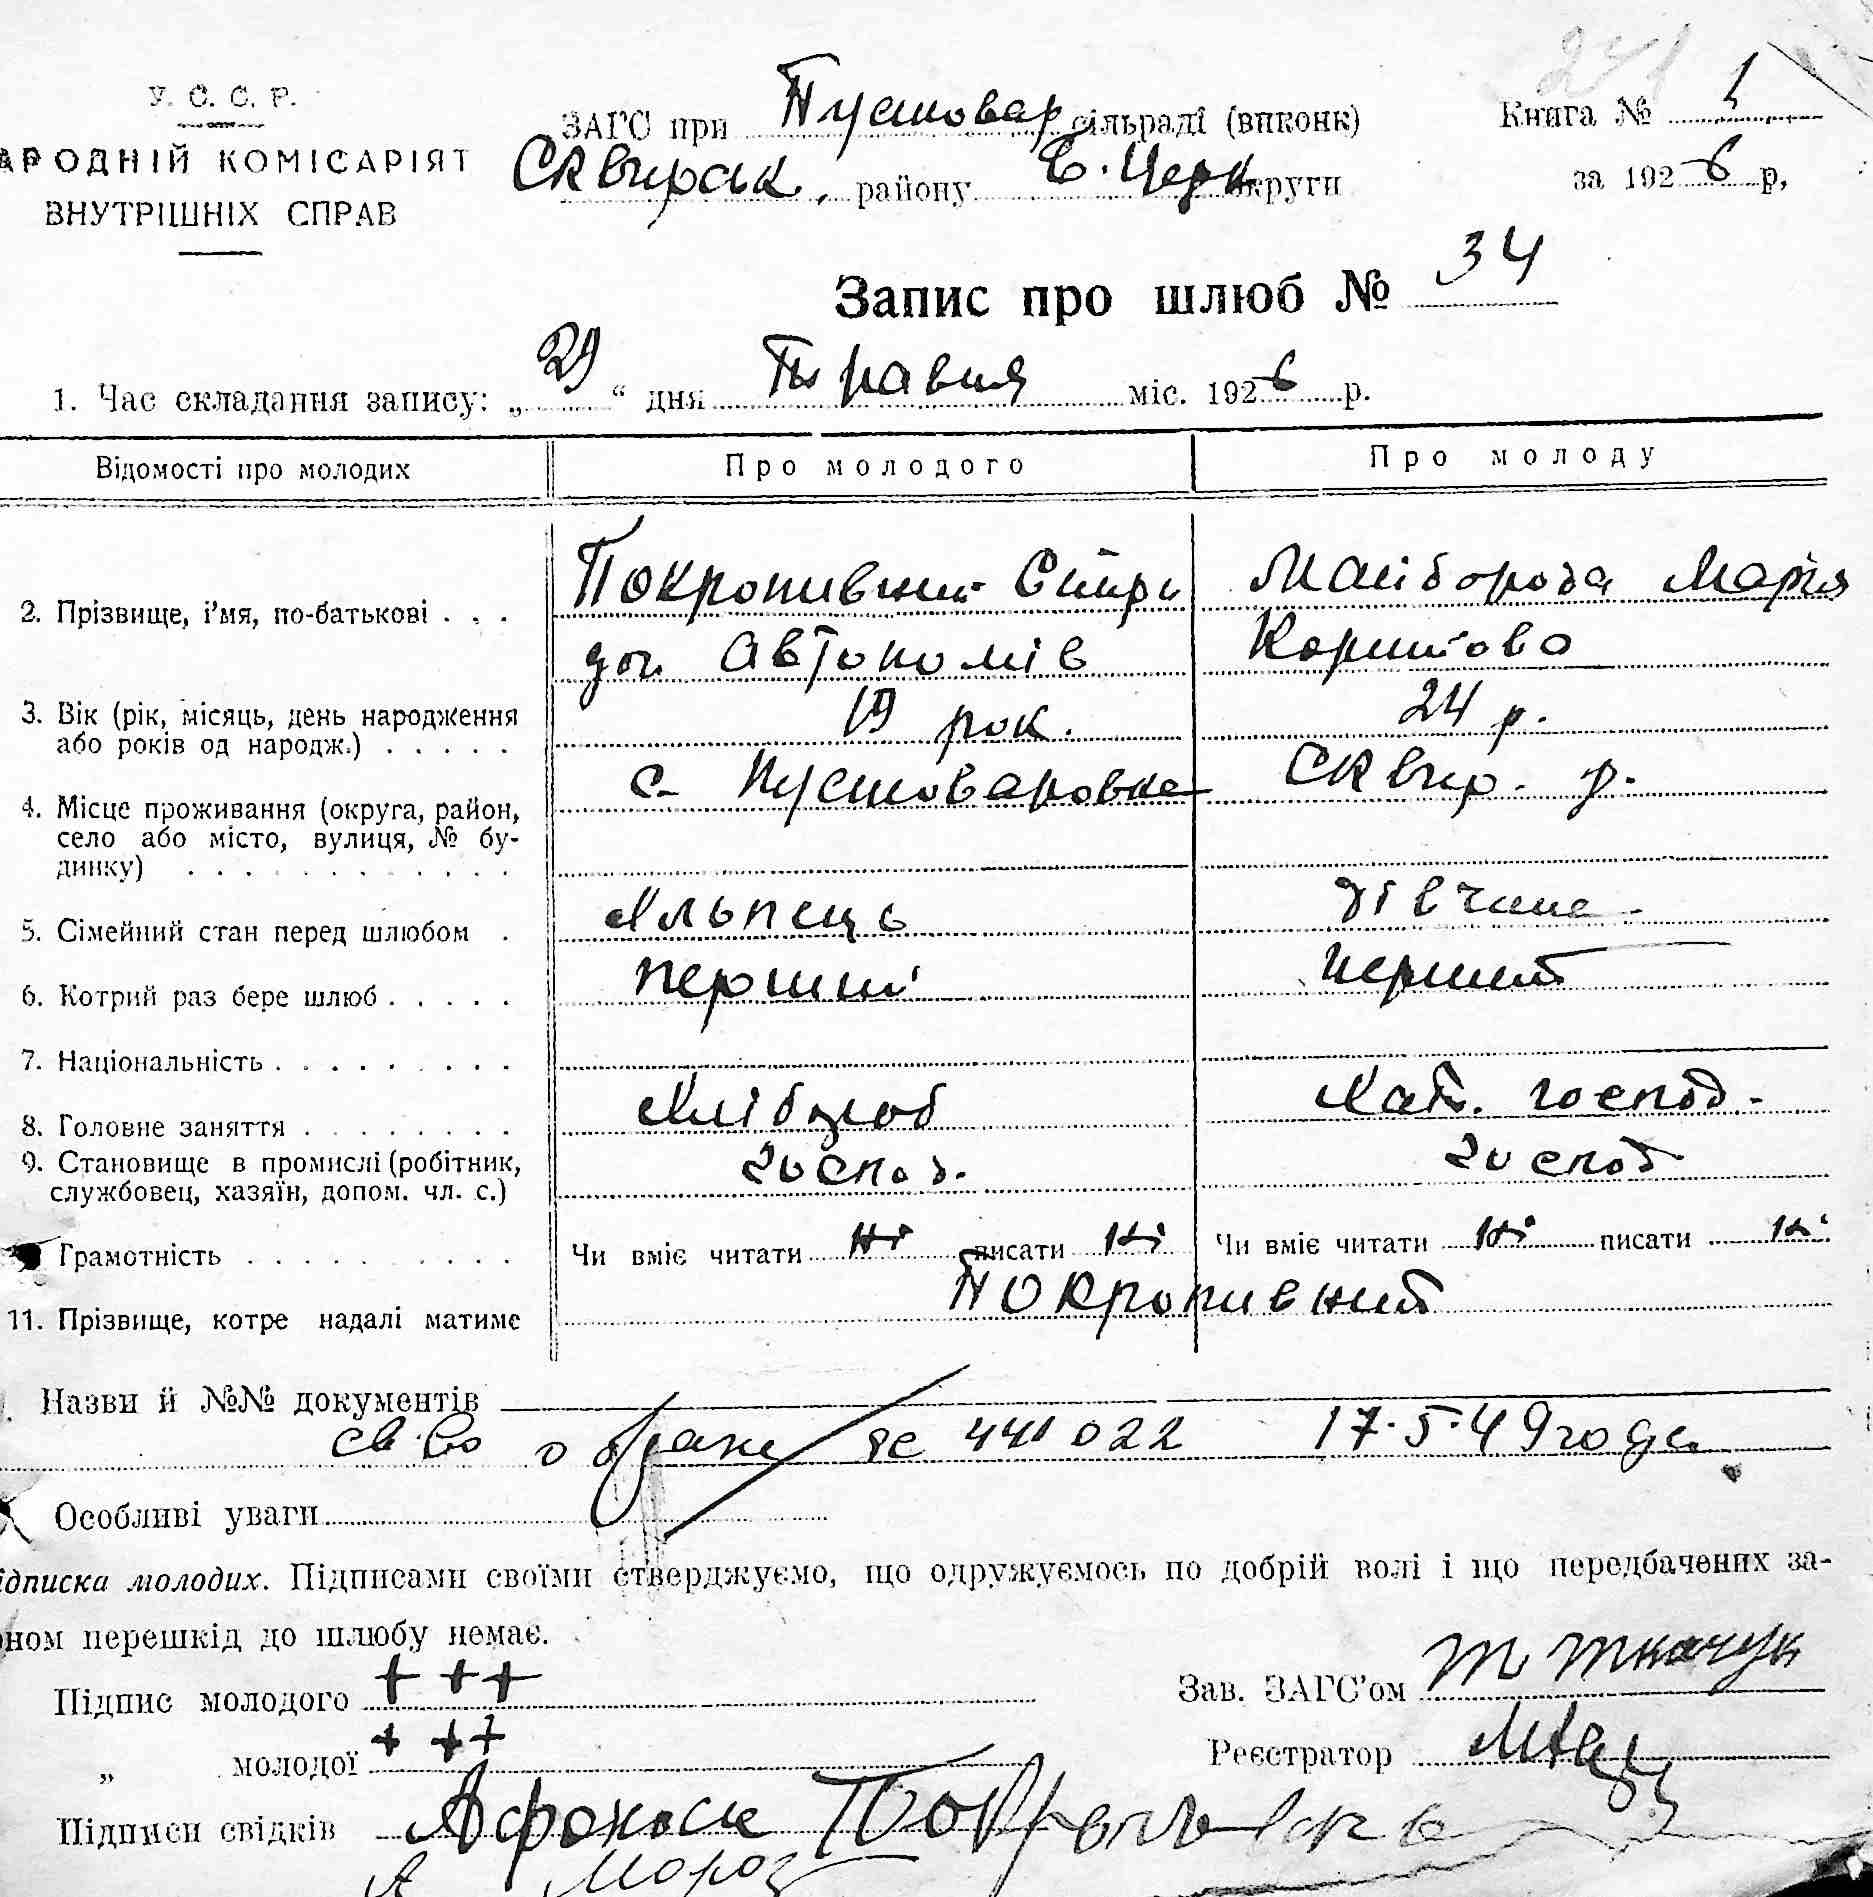 241
У. С. С. Р.
АРОДНІЙ КОМІСАРІЯТ
ВНУТРІШНІХ СПРАВ
ЗАГС при Пустовар сільраді (впконк)
Сквирськ. району Б. Церк округи
Книга № 1
за 1926 р,
Запис про шлюб № 34
1. Час складання запису: „29“ дня Травня міс. 1926 р.
Відомості про молодих Про молодого Про молоду
2. Прізвище, і’мя, по-батькові . . . Покропивний Спири Майборода Марія
дон Автономів
3. Вік (рік, місяць, день народження 19 рок. 24 р.
або років од народж.) . . . . .
4. Місце проживання (округа, район, с. Пустоваровка Сквир. р.
село або місто, вулиця, № бу-
динку) . . . . . . . . . . . .
5. Сімейний стан перед шлюбом . Хльпець дівчина
6. Котрий раз бере шлюб . . . . . перший перший
7. Національність . . . . . . . . .
8. Головне заняття . . . . . . . . Хлібороб Хат. господ.
9. Становище в промислі (робітник, господ. господ
службовец, хазяїн, допом. чл. с.)
Грамотність . . . . . . . . . . Чи вміє читати ні писати ні Чи вміє читати ні писати ні
11. Прізвище, котре надалі матиме Покропивний
Назви й №№ документів
св-во о браке 441022 17.5.49 года
Особливі уваги
ідписка молодих. Підписами своїми стверджуємо, що одружуємось по добрій волі і що передбачених за-
оном перешкід до шлюбу немає.
Підпис молодого + + +
Зав. ЗАГС’ом Т Ткачук
„ молодої + + +
Реєстратор
Підписи свідків Афонасе
А Мороз